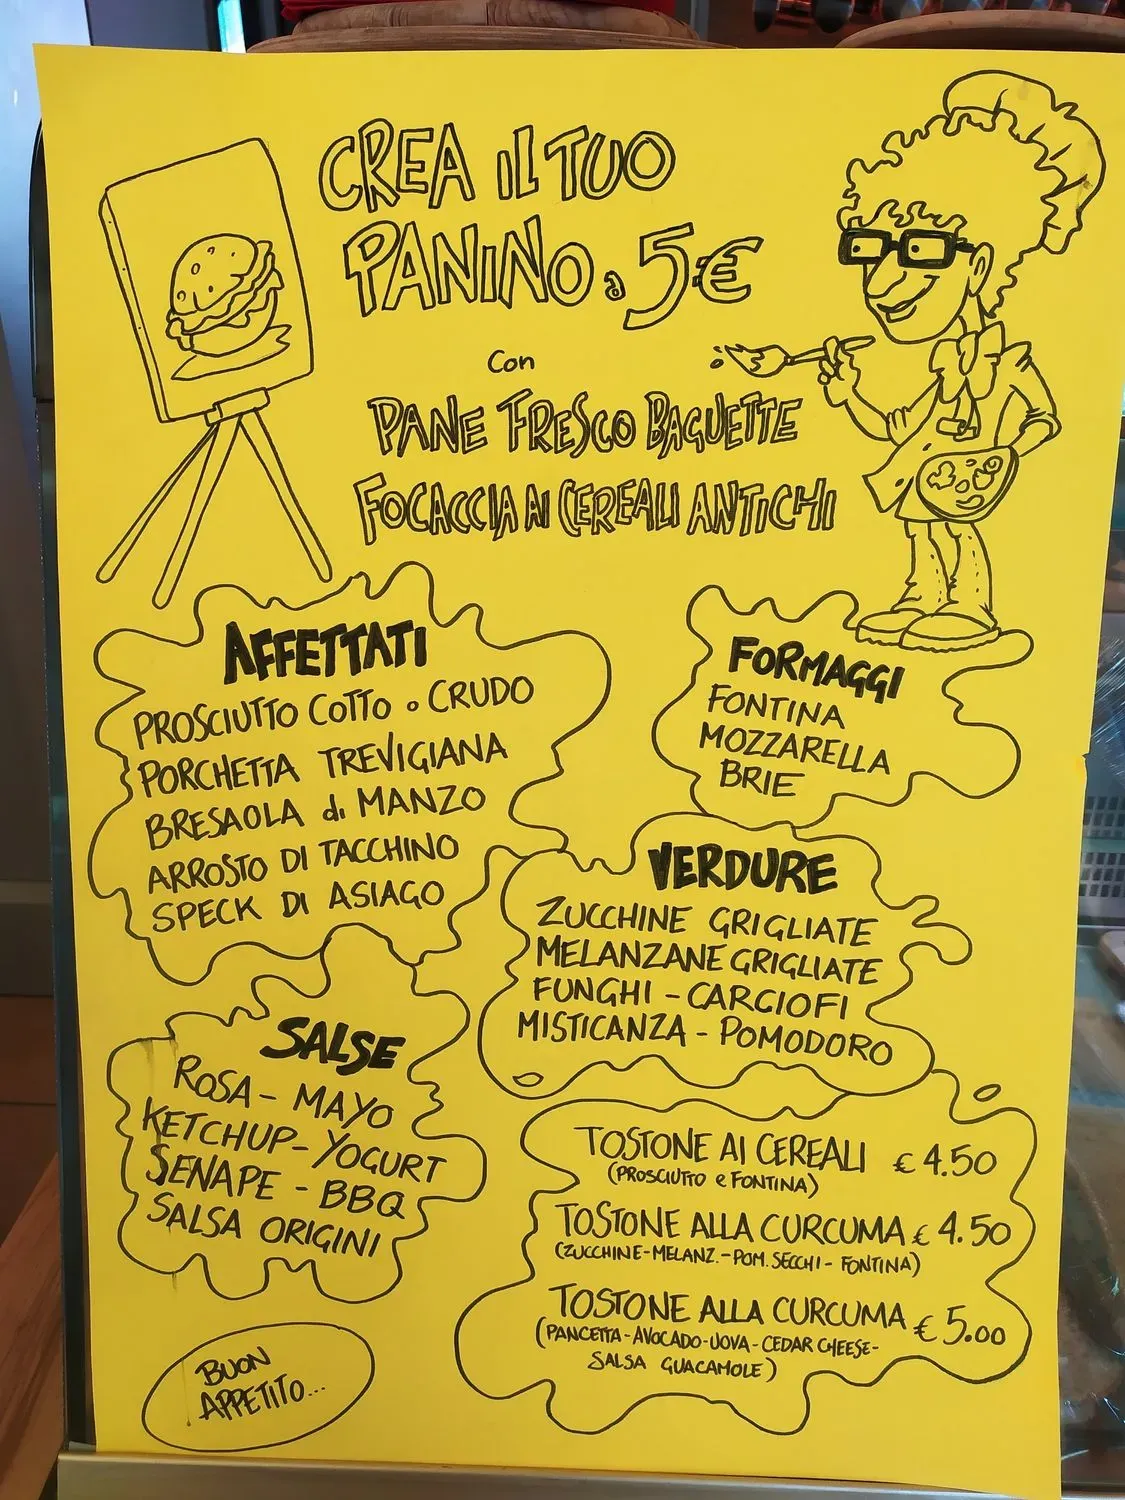 CREA IL TUO
PANINO a 5€
Con
PANE FRESCO BAGUETTE
FOCACCIA AI CEREALI ANTICHI
AFFETTATI
PROSCIUTTO COTTO o CRUDO
PORCHETTA TREVIGIANA
BRESAOLA di MANZO
ARROSTO DI TACCHINO
SPECK DI ASIAGO
FORMAGGI
FONTINA
MOZZARELLA
BRIE
VERDURE
ZUCCHINE GRIGLIATE
MELANZANE GRIGLIATE
FUNGHI - CARCIOFI
MISTICANZA - POMODORO
SALSE
ROSA - MAYO
KETCHUP - YOGURT
SENAPE - BBQ
SALSA ORIGINI
TOSTONE AI CEREALI € 4.50
(PROSCIUTTO e FONTINA)
TOSTONE ALLA CURCUMA € 4.50
(ZUCCHINE-MELANZ.-POM. SECCHI- FONTINA)
TOSTONE ALLA CURCUMA € 5.00
(PANCETTA-AVOCADO-UOVA-CEDAR CHEESE-
SALSA GUACAMOLE)
BUON
APPETITO...